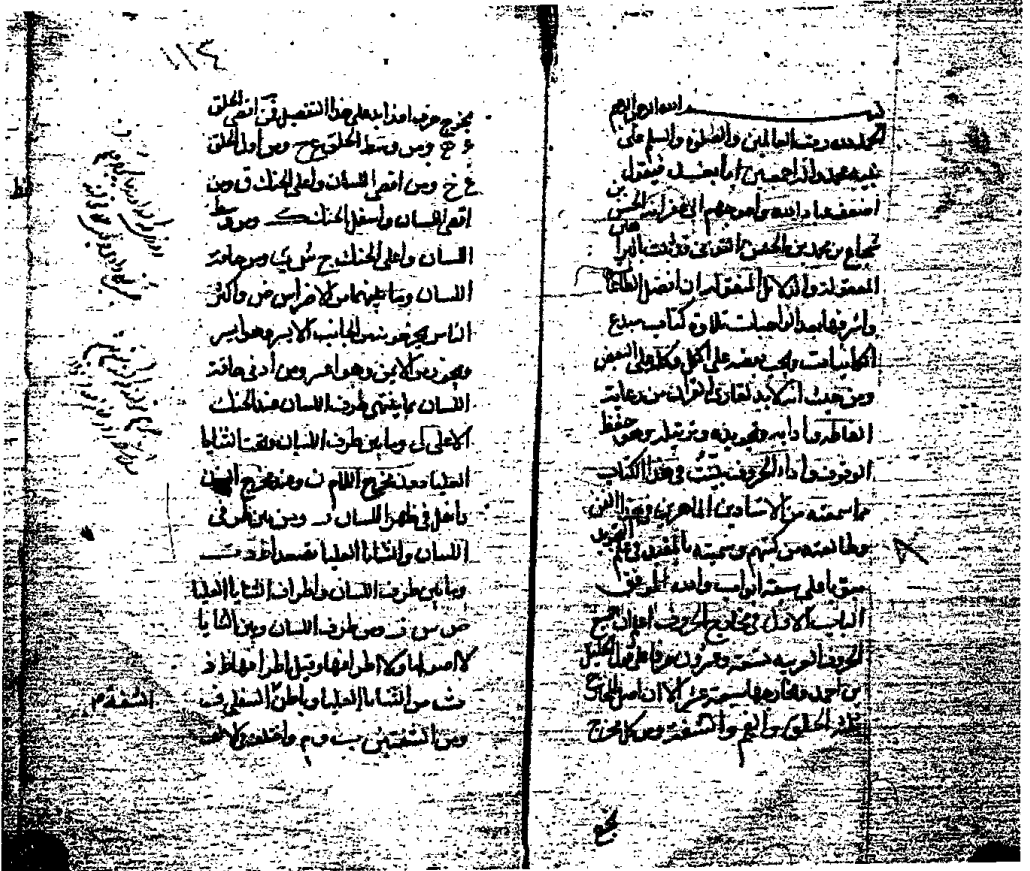 بسم الله الرحمن الرحيم
الحمد لله رب العالمين والصلوة والسلم على
نبيه محمد واله اجمعين اما بعد فيقول
اضعف عباد الله واحوجهم الى غفرانه الحسن بن
شجاع بن محمد بن الحسن التوني قد ثبت بالبراهين
المعقولة والدلائل المنقولة ان افضل الطاعات
واشرفها بعد الواجبات تلاوة كتاب مبدع
الكاينات ويجب بعضه على الكل وكله على البعض
ومن حيث انه لا بد لقاري القران من رعاية
الفاظه وادابه وتجويده وترتيله وهو حفظ
الوقوف واداء الحروف بينت في هذا الكتاب
ما سمعته من الاستادين الماهرين في هذا الفن
وطالعته من كتبهم وسميته بالمفيد في علم التجويد
مبوبا على سبعة ابواب والله الموفق
الباب الاول في مخارج الحروف اعلم ان جميع
الحروف العربية تسعة وعشرون حرفا على قول الخليل
بن احمد ومخارجها سبعة عشر الا ان اصل المخارج
ثلثة الحلق والفم والشفة ومن كل مخرج
يخرج
يخرج حرف او زايد على هذا التفصيل فمن اقصى الحلق
ء ه ومن وسط الحلق ع ح ومن اول الحلق
غ خ ومن اقصى اللسان واعلى الحنك ق ومن
اقصى اللسان واسفل الحنك ك ومن وسط
اللسان واعلى الحنك ج ش ي ومن حافة
اللسان وما يليها من الاضراس ض واكثر
الناس يخرجونه من الجانب الايسر وهو ايسر
ويجوز من الايمن وهو اعسر ومن ادنى حافة
اللسان ما ينتهي طرف اللسان عند الحنك
الاعلى ل وما بين طرف اللسان وفوق الثنايا
العليا بعد مخرج اللام ن وعند مخرج النون
داخل في ظهر اللسان ر ومن بين طرفي
اللسان والثنايا العليا مصعدا ط د ت
وما بين طرف اللسان واطراف الثنايا العليا
ص س ز ومن طرف اللسان وبين الثنايا
لا اصولها ولا اطرافها وقيل اطرافها ظ ذ
ث ومن الثنايا العليا وباطن السفلى ف
ومن الشفتين ب و م
الشفة م